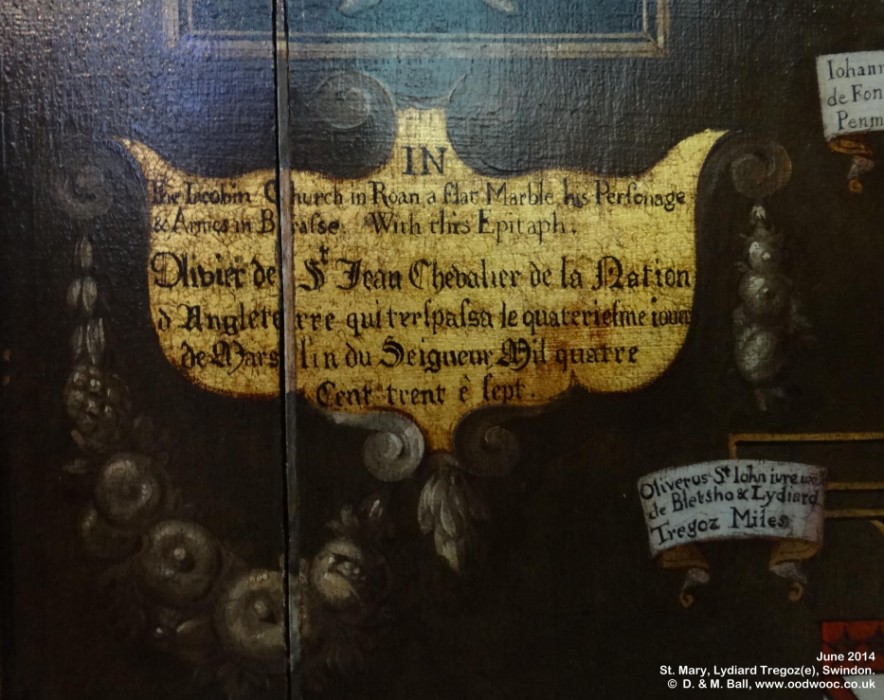 IN
The Iacobin Church in Roan a flat Marble his Personage
& Armes in Brasse. With this Epitaph.
Olivier de St Jean Chevalier de la Nation
d'Angleterre qui trespassa le quateriesme iour
de Mars lin du Seigneur Mil quatre
Cent trent è sept.
Iohann
de Fon
Penm
Oliverus St Iohn iure uxo
de Bletsho & Lydiard
Tregoz Miles
June 2014
St. Mary, Lydiard Tregoz(e), Swindon.
© D. & M. Ball, www.oodwooc.co.uk